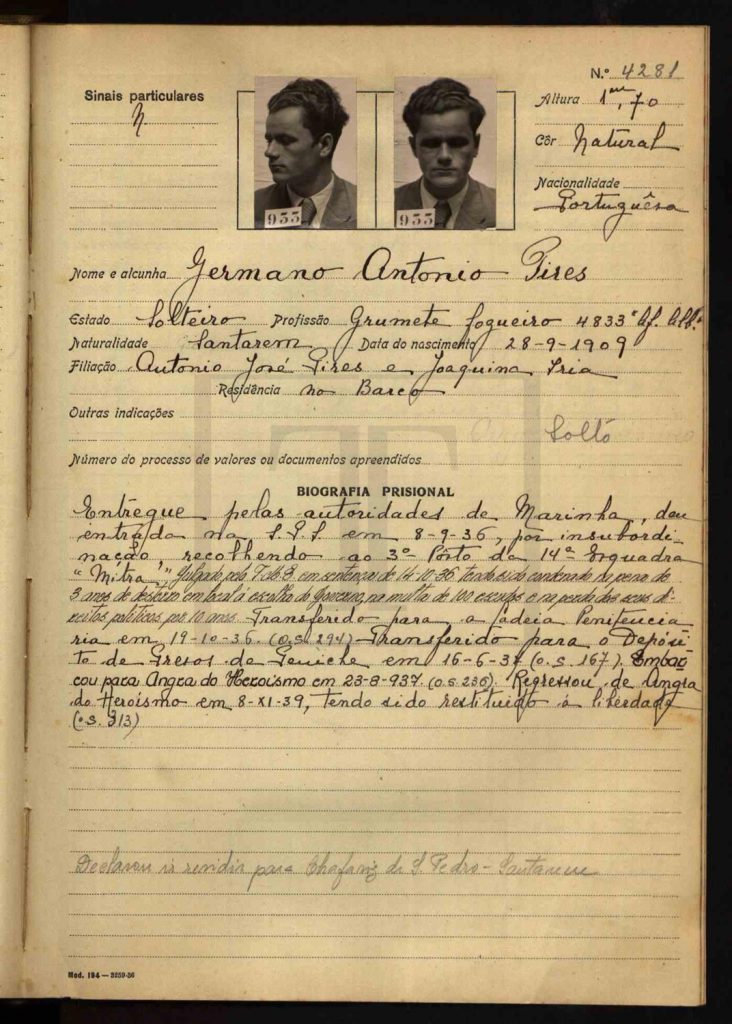 N.º 4281
Sinais particulares
N
Altura 1m,70
Côr Natural
Nacionalidade
Portuguêsa
933
933
Nome e alcunha Germano Antonio Pires
Estado Solteiro Profissão Grumete fogueiro 4833
Naturalidade Santarem Data do nascimento 28-9-1909
Filiação Antonio José Pires e Joaquina Iria
Residência no Barco
Outras indicações
Soltó
Número do processo de valores ou documentos apreendidos
BIOGRAFIA PRISIONAL
Entregue pelas autoridades de Marinha, deu
entrada na S.P.S em 8-9-36, por insubordi-
nação, recolhendo ao 3º Pôsto da 14ª Esquadra
"Mitra". Julgado pelo T.M.E. em sentença de 14-10-36 tendo sido condenado na pena de
3 anos de desterro em local á escolha do Governo, na multa de 100 escudos e na perda dos seus di-
reitos politicos por 10 anos. Transferido para a Cadeia Penitencia
ria em 19-10-36. (O.S. 294) Transferido para o Depósi
to de Presos de Peniche em 16-6-37 (O.S. 167). Embar
cou para Angra do Heroismo em 23-8-937. (O.S. 236). Regressou de Angra
do Heroísmo em 8-XI-39, tendo sido restituido á liberdade
(O.S. 313)
Declarou ir residir para Chafariz de S. Pedro - Santarem
Mod. 194 — 3259-36